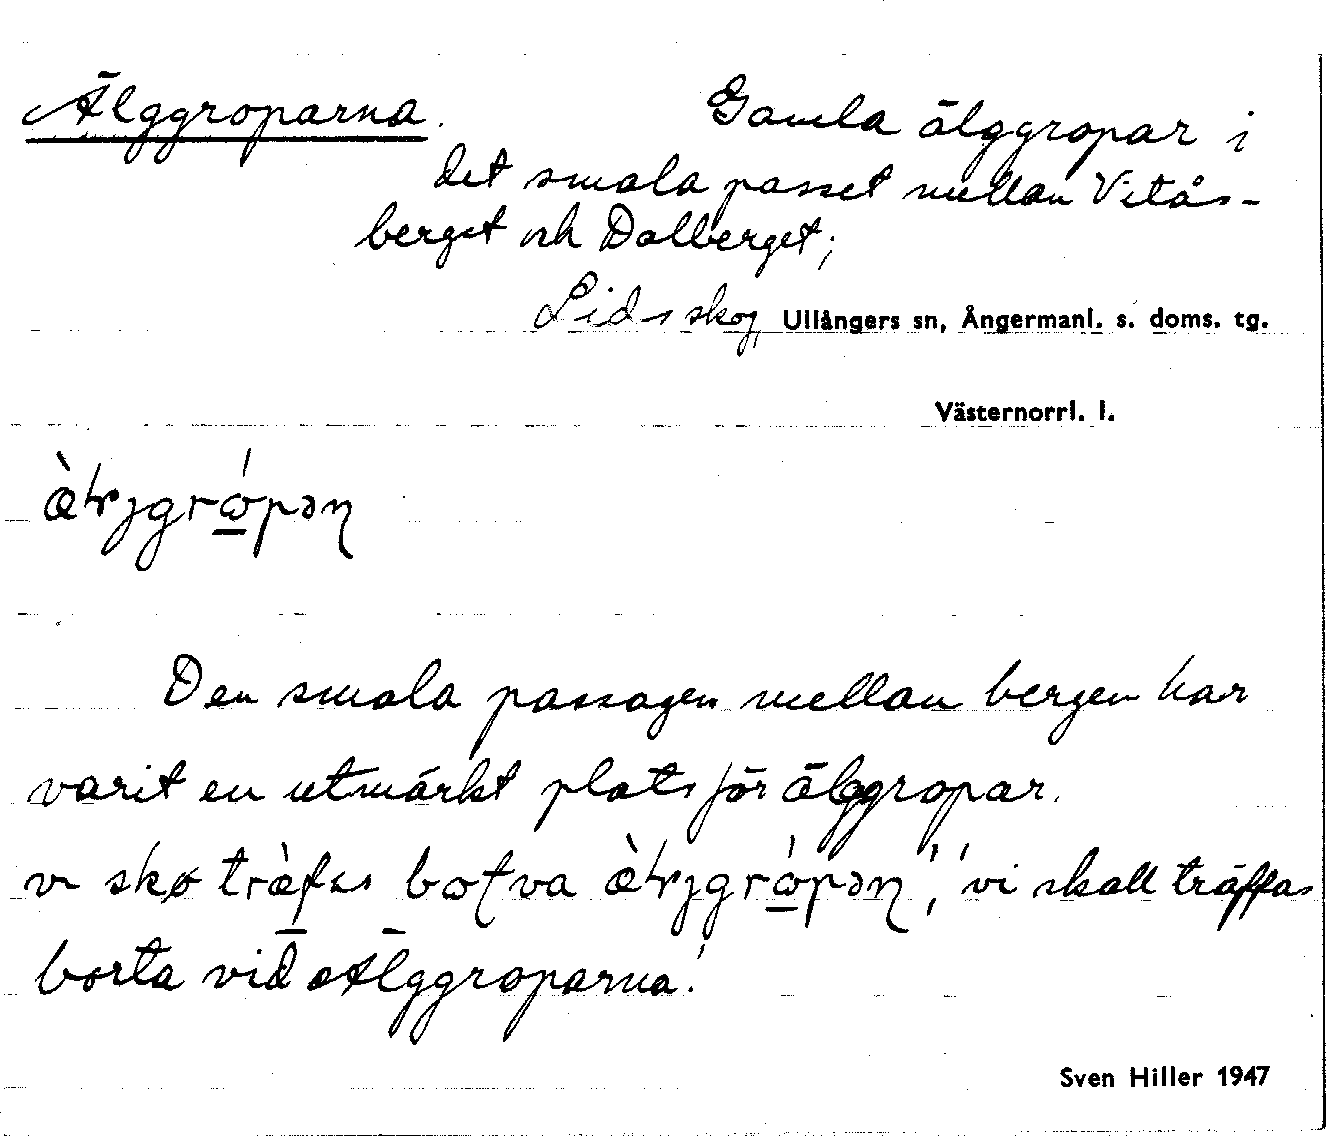 Älggroparna. Gamla älggropar i
det smala passet mellan Vitås-
berget och Dalberget;
Lidsskog, Ullångers sn, Ångermanl. s. doms. tg.
Västernorrl. l.
Den smala passagen mellan bergen har
varit en utmärkt plats för älggropar.
'vi skall träffas
borta vid Älggroparna'.
Sven Hiller 1947